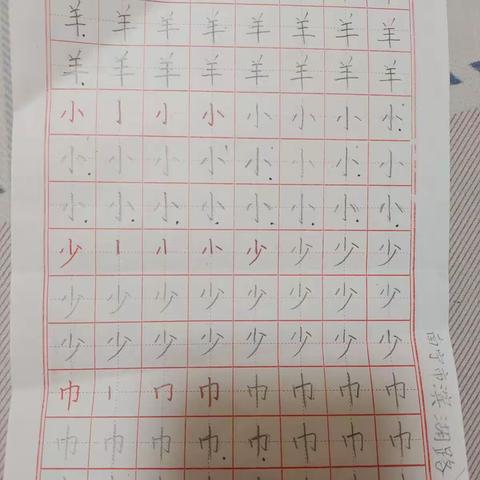 羊 羊 羊 羊 羊 羊 羊 羊
羊 羊 羊 羊 羊 羊 羊 羊
小 亅 小 小 小 小 小
小 小 小 小 小 小 小 小
小 小 小 小 小 小 小 小
少 丨 小 少 少 少 少
少 少 少 少 少 少 少 少
少 少 少 少 少 少 少 少
巾 丨 冂 巾 巾 巾 巾 巾
巾 巾 巾 巾 巾 巾 巾 巾
南宁市滨湖路